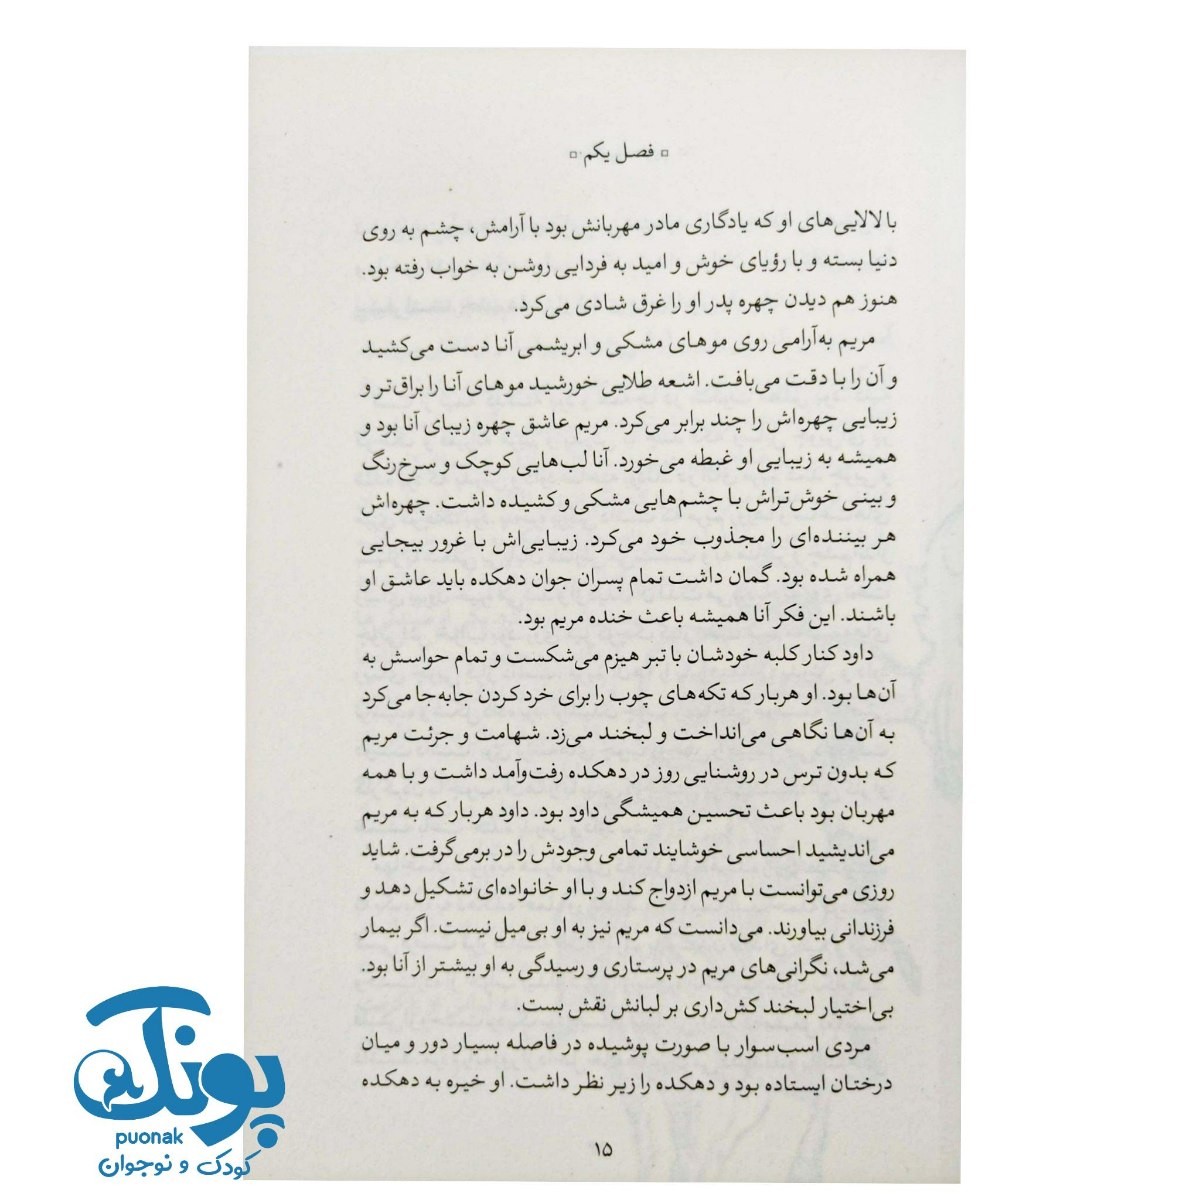 ▫ فصل یکم ▫
با لالایی‌های او که یادگاری مادر مهربانش بود با آرامش، چشم به روی
دنیا بسته و با رؤیای خوش و امید به فردایی روشن به خواب رفته بود.
هنوز هم دیدن چهره پدر او را غرق شادی می‌کرد.
مریم به‌آرامی روی موهای مشکی و ابریشمی آنا دست می‌کشید
و آن را با دقت می‌بافت. اشعه طلایی خورشید موهای آنا را براق‌تر و
زیبایی چهره‌اش را چند برابر می‌کرد. مریم عاشق چهره زیبای آنا بود و
همیشه به زیبایی او غبطه می‌خورد. آنا لب‌هایی کوچک و سرخ‌رنگ
و بینی خوش‌تراش با چشم‌هایی مشکی و کشیده داشت. چهره‌اش
هر بیننده‌ای را مجذوب خود می‌کرد. زیبایی‌اش با غرور بیجایی
همراه شده بود. گمان داشت تمام پسران جوان دهکده باید عاشق او
باشند. این فکر آنا همیشه باعث خنده مریم بود.
داود کنار کلبه خودشان با تبر هیزم می‌شکست و تمام حواسش به
آن‌ها بود. او هربار که تکه‌های چوب را برای خرد کردن جابه‌جا می‌کرد
به آن‌ها نگاهی می‌انداخت و لبخند می‌زد. شهامت و جرئت مریم
که بدون ترس در روشنایی روز در دهکده رفت‌وآمد داشت و با همه
مهربان بود باعث تحسین همیشگی داود بود. داود هربار که به مریم
می‌اندیشید احساسی خوشایند تمامی وجودش را در برمی‌گرفت. شاید
روزی می‌توانست با مریم ازدواج کند و با او خانواده‌ای تشکیل دهد و
فرزندانی بیاورند. می‌دانست که مریم نیز به او بی‌میل نیست. اگر بیمار
می‌شد، نگرانی‌های مریم در پرستاری و رسیدگی به او بیشتر از آنا بود.
بی‌اختیار لبخند کش‌داری بر لبانش نقش بست.
مردی اسب‌سوار با صورت پوشیده در فاصله بسیار دور و میان
درختان ایستاده بود و دهکده را زیر نظر داشت. او خیره به دهکده
۱۵
پونک
puonak
کودک و نوجوان